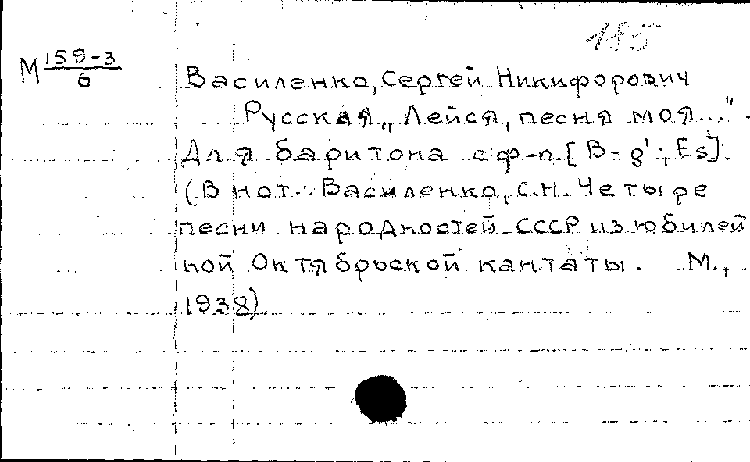 185
М 159-3/6
Василенко, Сергей Никифорович
Русская „Лейся, песня моя..."
Для баритона с ф-п. [B-g'; Es]
(В нот.: Василенко, С.Н. Четыре
песни народностей СССР из юбилей
ной Октябрьской кантаты. М.,
1938)